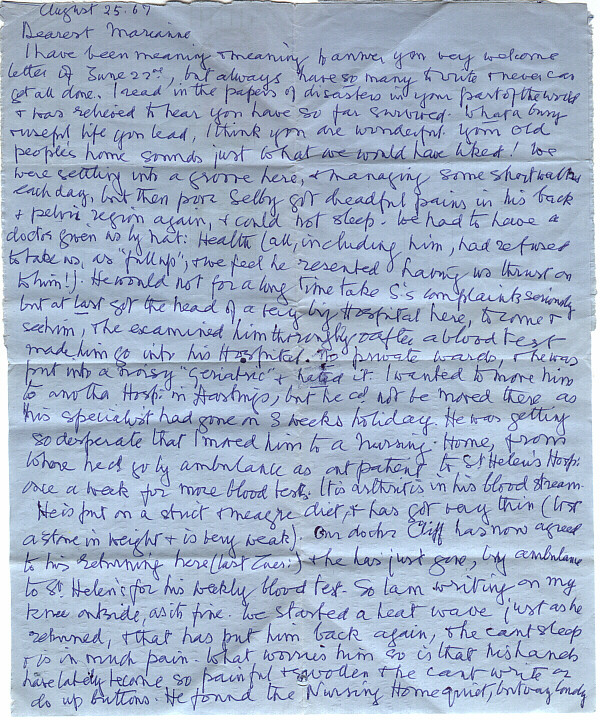 August 25. 67
Dearest Marianne
I have been meaning & meaning to answer your very welcome
letter of June 22nd, but always have so many to write & never can
get all done. I read in the papers of disasters in your part of the world
& was relieved to hear you have so far survived. What a busy
& useful life you lead, I think you are wonderful. Your old
people's home sounds just what we would have liked! We
were settling into a groove here, & managing some short walks
each day, but then poor Selby got dreadful pains in his back
& pelvic region again, & could not sleep. We had to have a
doctor given us by Nat: Health (all, including him, had refused
to take us, as "full up", & we feel he resented having us thrust on
to him!). He would not for a long time take S's complaints seriously
but at last got the head of a very big Hospital here, to come &
see him, & he examined him thoroughly & after a blood test
made him go into his Hospital. No private wards, & he was
put into a noisy "Geriatric" & hated it. I wanted to move him
to another Hosp: in Hastings, but he cd not be moved there as
this specialist had gone on 3 weeks holiday. He was getting
so desperate that I moved him to a Nursing Home, from
where he cd go by ambulance as out patient to St Helen's Hosp:
once a week for more blood tests. It is arthritis in his blood stream.
He is put on a strict & meagre diet, & has got very thin (lost
a stone in weight & is very weak). Our doctor Cliff has now agreed
to his returning here (last Tues:) & he has just gone, by ambulance
to St. Helen's for his weekly blood test. So I am writing on my
knee outside, as it's fine. We started a heat wave just as he
returned, & that has put him back again, & he can't sleep
& is in much pain. What worries him so is that his hands
have lately become so painful & swollen & he can't write or
do up buttons. He found the Nursing Home quiet, but very lonely